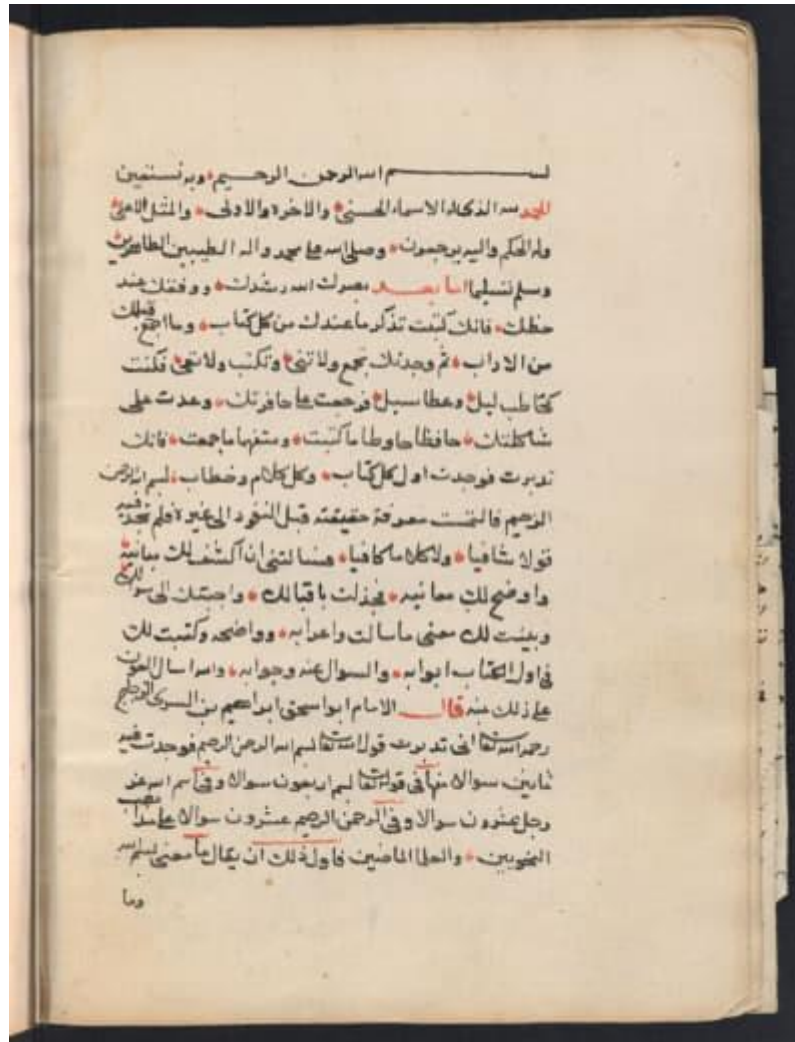 بسم الله الرحمن الرحيم وبه نستعين
الحمد لله الذي له الاسماء الحسنى والاخرة والاولى والمثل الاعلى
وله الحكم واليه يرجعون وصلى الله على محمد واله الطيبين الطاهرين
وسلم تسليما اما بعد بصرك الله رشدك ووفقك عند
حظك فانك كتبت تذكر ما عندك من كل كتاب وما اجتمع قبلك
من الاداب ثم وجدتك تجمع ولا تنى وتكتب ولا تعى فكنت
كحاطب ليل وعطا سيل فرجعت على حافرتك وعدت على
شاكلتك حافظا حاوطا ما كتبت ومتفهما ما جمعت فانك
تدبرت فوجدت اول كل كتاب وكل كلام وخطاب بسم الله الرحمن
الرحيم فالتمست معرفة حقيقته قبل النفوذ الى غيره فلم تجد فيه
قولا شافيا ولا كلاما كافيا فسالتنى ان اكشف لك
واوضح لك معانيه فجذلت باقبالك واجبتك الى سوالك
وبينت لك معنى ما سالت واعرابه وواضحه وكتبت لك
فى اول الكتاب ابوابه والسوال عنه وجوابه والله اسال العون
على ذلك عنه قال الامام ابو اسحق ابراهيم بن السرى الزجاج
رحمه الله تعالى انى تدبرت قول الله تعالى بسم الله الرحمن الرحيم فوجدت فيه
ثمانين سوالا منها فى قوله تعالى بسم اربعون سوالا وفى اسم الله عز
وجل عشرون سوالا وفى الرحمن الرحيم عشرون سوالا على مذهب
النحويين والعلما الماضين فاول ذلك ان يقال ما معنى بسم الله
وما